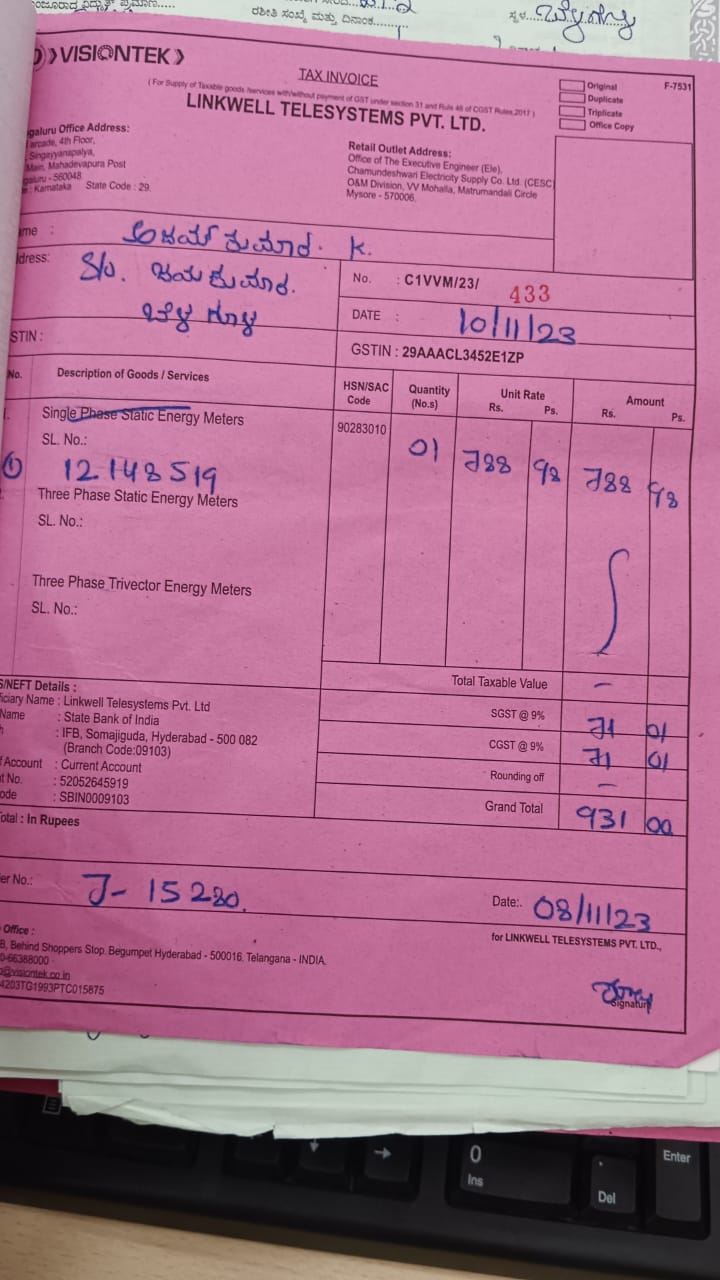 ರಶೀತಿ ಸಂಖ್ಯೆ ಮತ್ತು ದಿನಾಂಕ
ಸ್ಥಳ
VISIONTEK
TAX INVOICE
(For Supply of Taxable goods /services with/without payment of GST under section 31 and Rule 46 of CGST Rules,2017)
LINKWELL TELESYSTEMS PVT. LTD.
Original
Duplicate
Triplicate
Office Copy
F-7531
galuru Office Address:
arcade, 4th Floor,
Singayyanapalya,
Main, Mahadevapura Post
galuru - 560048.
e : Karnataka State Code : 29.
Retail Outlet Address:
Office of The Executive Engineer (Ele),
Chamundeshwari Electricity Supply Co. Ltd. (CESC)
O&M Division, VV Mohalla, Matrumandali Circle
Mysore - 570006.
ame : ಅಜಯ್ ಕುಮಾರ. K.
ddress: S/o. ಜಯಕುಮಾರ.
ಬೆಳಗೊಳ
No. : C1VVM/23/ 433
DATE : 10/11/23
STIN :
GSTIN : 29AAACL3452E1ZP
No. Description of Goods / Services HSN/SAC Code Quantity (No.s) Unit Rate Rs. Ps. Amount Rs. Ps.
1. Single Phase Static Energy Meters 90283010 01 788 98 788 98
SL. No.:
① 12148519
Three Phase Static Energy Meters
SL. No.:
Three Phase Trivector Energy Meters
SL. No.:
Total Taxable Value -
S/NEFT Details :
ficiary Name : Linkwell Telesystems Pvt. Ltd
Name : State Bank of India
h : IFB, Somajiguda, Hyderabad - 500 082
(Branch Code:09103)
f Account : Current Account
t No. : 52052645919
ode : SBIN0009103
SGST @ 9% 71 01
CGST @ 9% 71 01
Rounding off -
Grand Total 931 00
Total : In Rupees
er No.: J- 15280.
Date:. 08/11/23
Office :
B, Behind Shoppers Stop, Begumpet Hyderabad - 500016, Telangana - INDIA.
0-66388000
@visiontek.co.in
4203TG1993PTC015875
for LINKWELL TELESYSTEMS PVT. LTD.,
Signature
0
Ins
.
Del
Enter